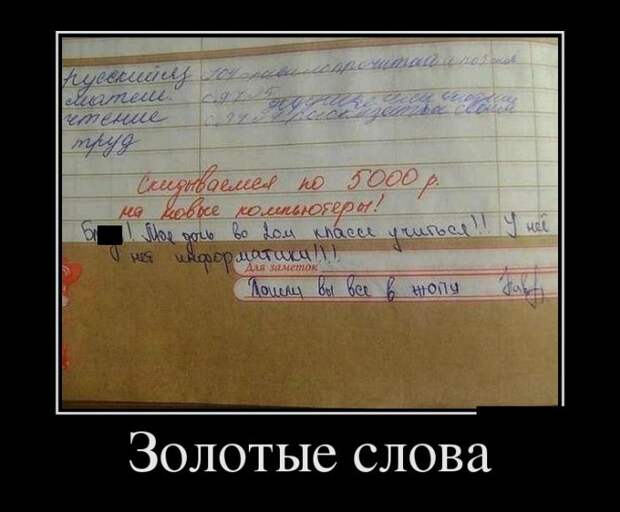 русский яз
матем. с. 97
чтение
труд
Скидываемся по 5000 р.
на новые компьютеры!
Моя дочь во 2ом классе учиться!! У неё
нет информатики!!!
Для заметок
Пошли вы все в жопу
Золотые слова